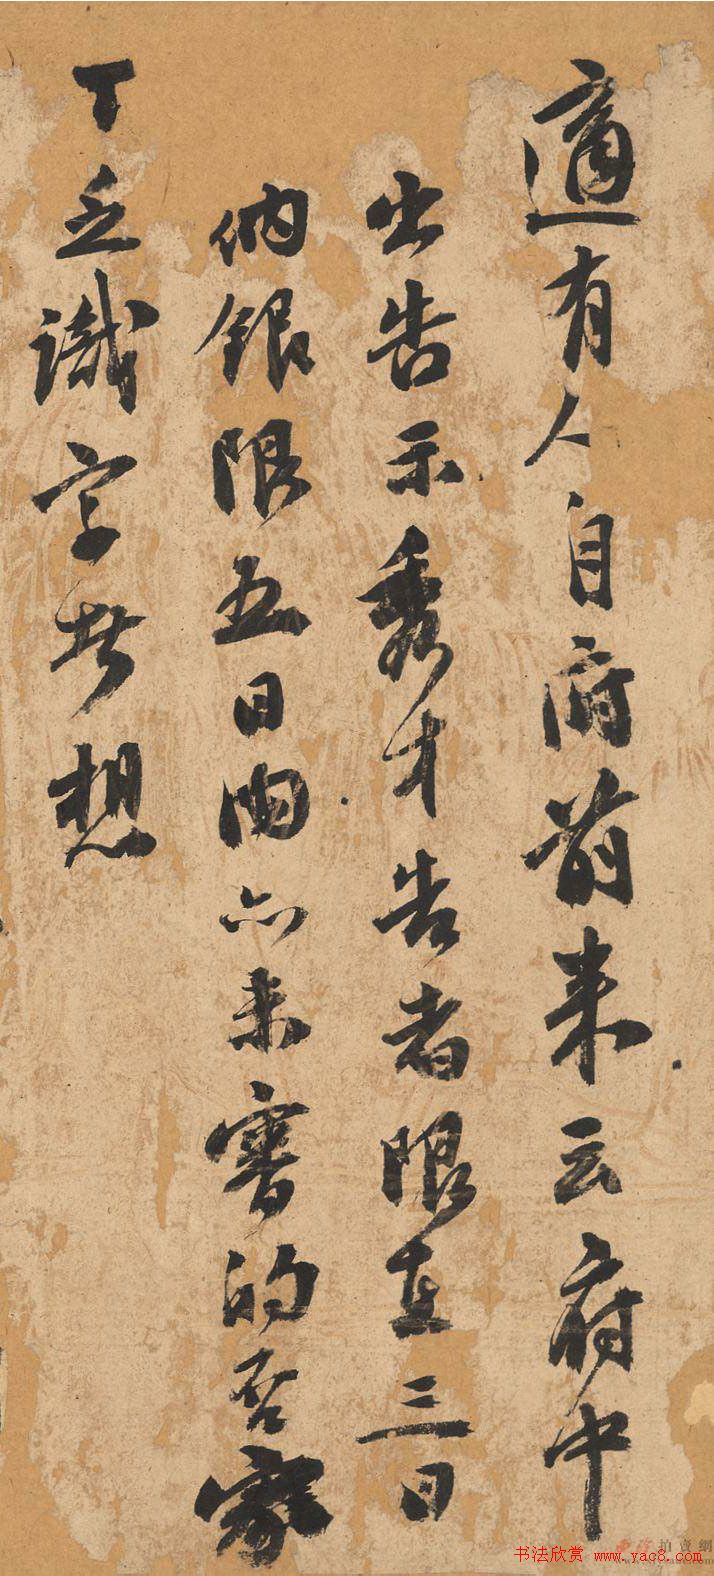 適有人自府前来云府中
出告示秀才告者限在三日
納銀限五日内亦未審的否家
丁乏識字者想
书法欣赏 www.yac8.com